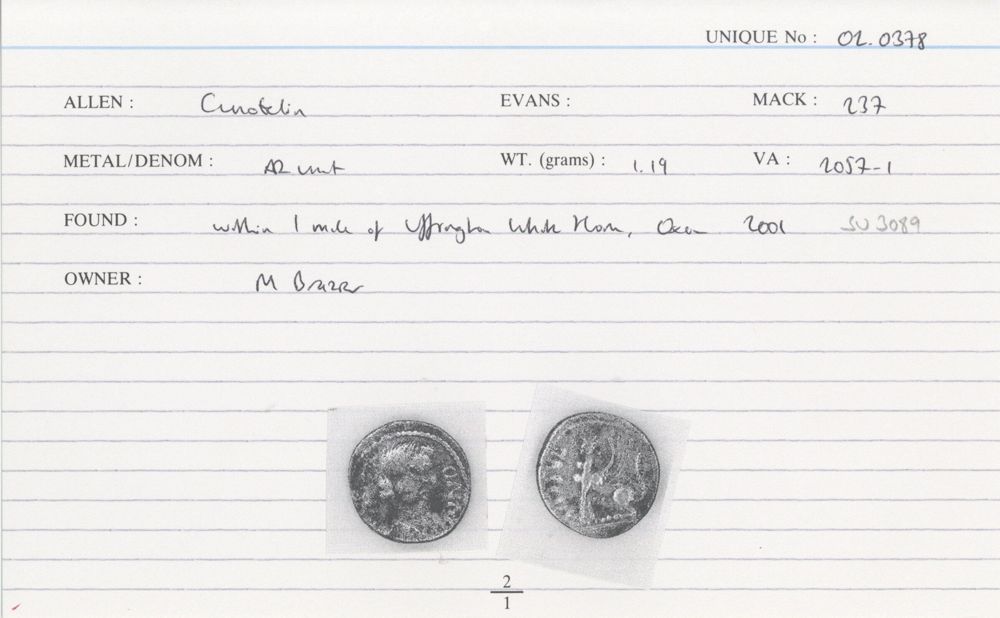 UNIQUE No : 02.0378
ALLEN : Cunobelin EVANS : MACK : 237
METAL/DENOM : AR unit WT. (grams) : 1.19 VA : 2057-1
FOUND : within 1 mile of Uffington White Horse, Oxon 2001 SU 3089
OWNER : M
2
1